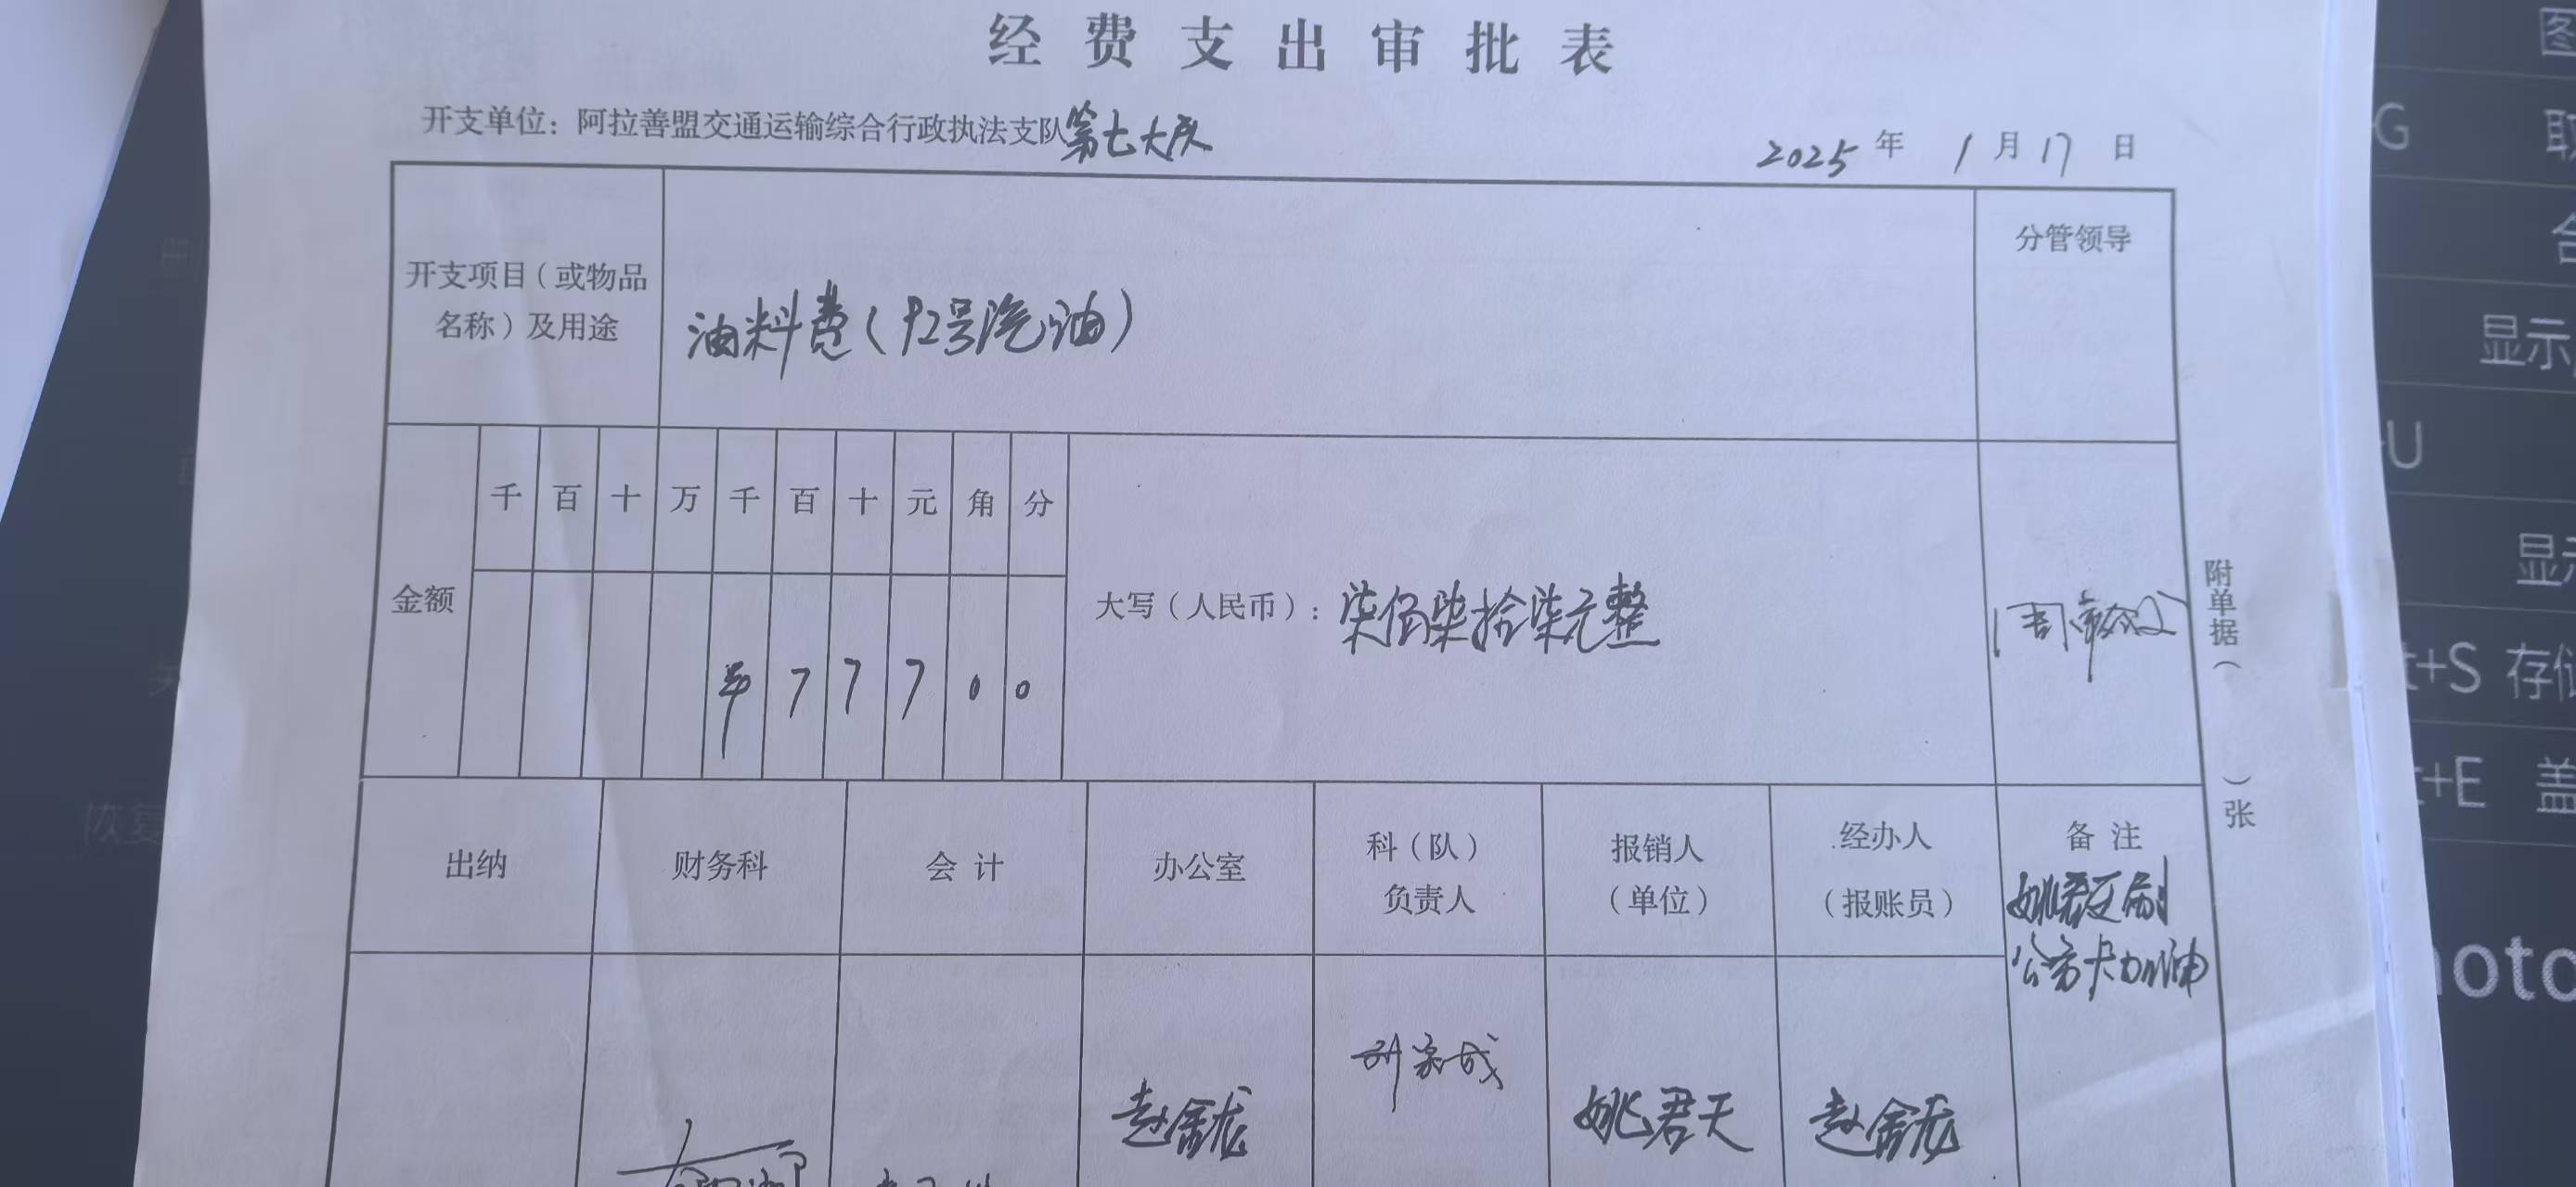 经费支出审批表
开支单位：阿拉善盟交通运输综合行政执法支队第七大队
2025年 1月17日
开支项目（或物品名称）及用途
油料费（92号汽油）
分管领导
金额
千 百 十 万 千 百 十 元 角 分
¥ 7 7 7 0 0
大写（人民币）：柒佰柒拾柒元整
附单据（ ）张
出纳
财务科
会计
办公室
科（队）负责人
报销人（单位）
经办人（报账员）
备注
公务卡加油
赵
姚君天
赵
图
G 取
合
显示
U
显示
t+S 存储
t+E 盖
恢复
hoto